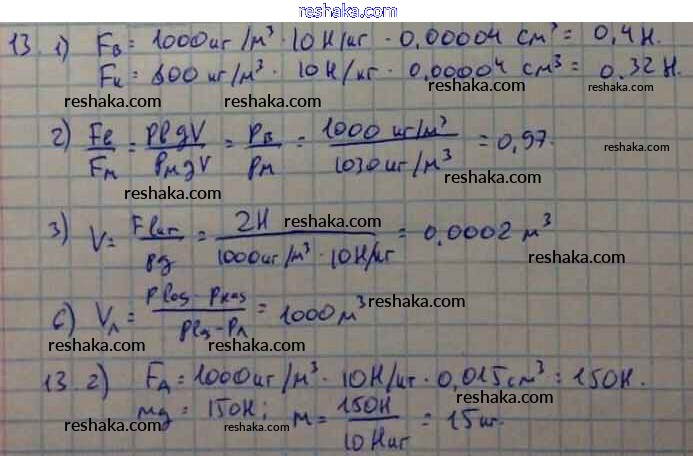 reshaka.com
13. 1) Fв = 1000 кг/м³ · 10 Н/кг · 0,00004 см³ = 0,4 Н.
Fк = 800 кг/м³ · 10 Н/кг · 0,00004 см³ = 0.32 Н.
reshaka.com reshaka.com reshaka.com reshaka.com
2) Fв/Fм = ρвgV/ρмgV = ρв/ρм = 1000 кг/м³ / 1030 кг/м³ = 0,97.
reshaka.com reshaka.com reshaka.com reshaka.com
3) V = Fвыт/ρg = 2Н / 1000 кг/м³ · 10 Н/кг = 0,0002 м³
reshaka.com reshaka.com
6) Vл = / = 1000 м³
reshaka.com reshaka.com reshaka.com reshaka.com
13. 2) FА = 1000 кг/м³ · 10 Н/кг · 0,015 см³ = 150 Н.
mg = 150Н; m = 150Н / 10 Н/кг = 15 кг.
reshaka.com reshaka.com reshaka.com reshaka.com